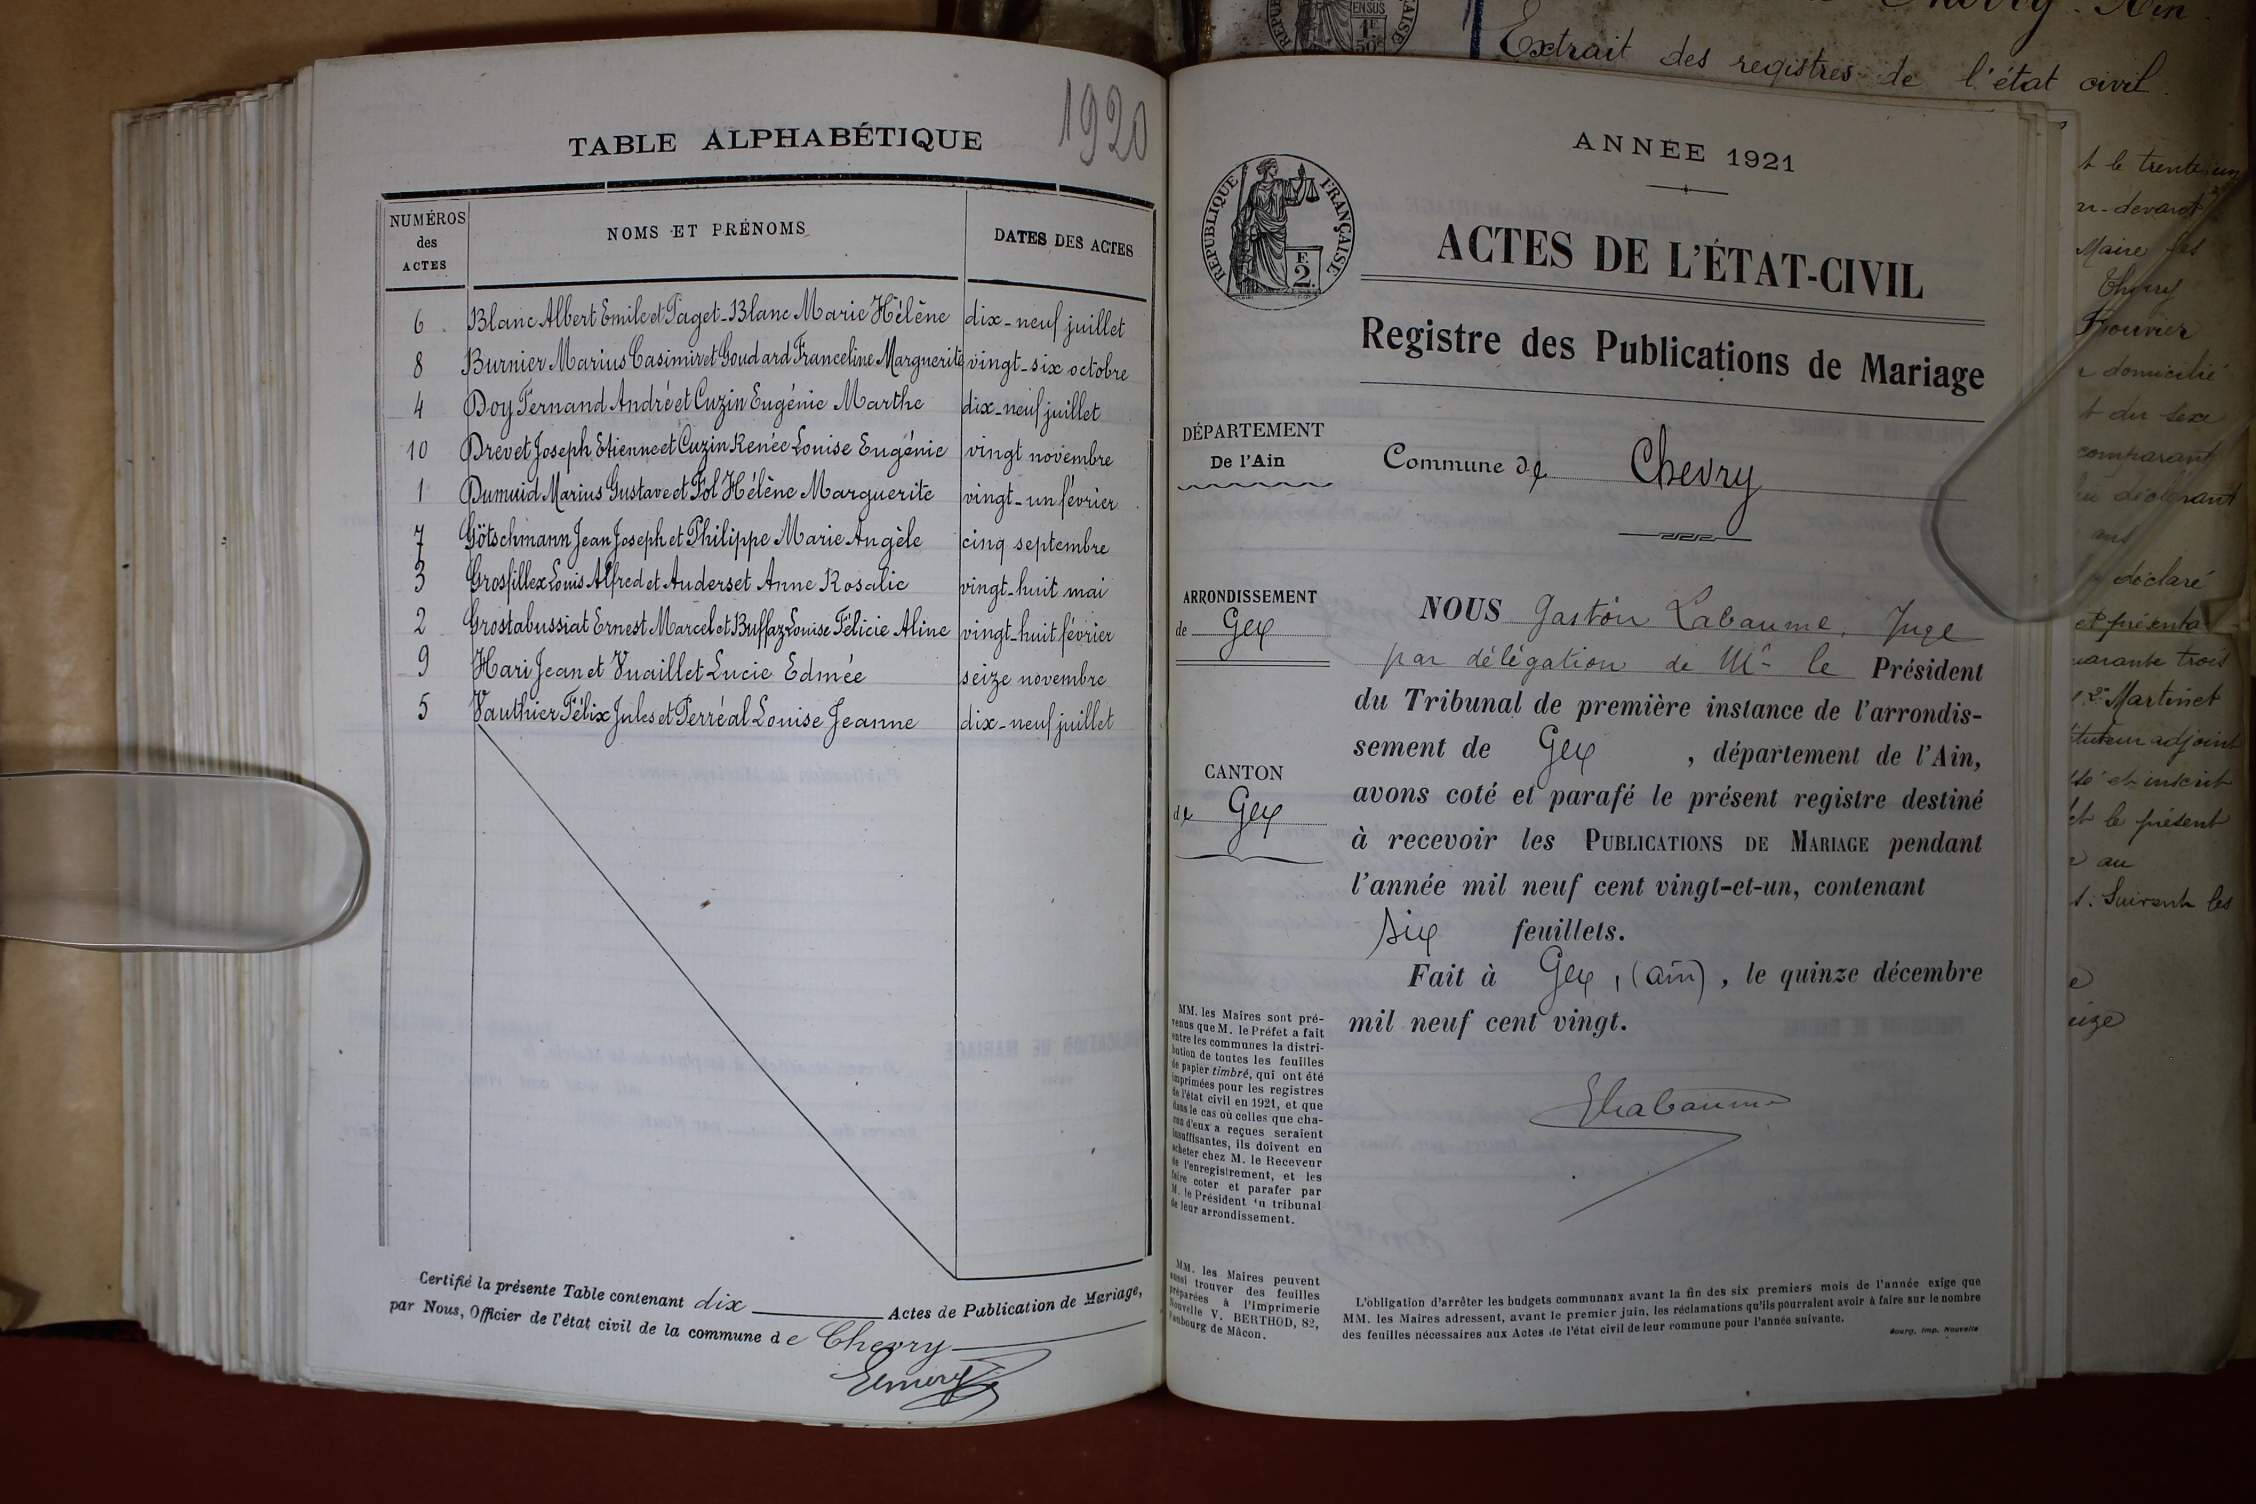 1920
TABLE ALPHABÉTIQUE
NUMÉROS des ACTES
NOMS ET PRÉNOMS
DATES DES ACTES
6 Blanc Albert Emile et Paget-Blanc Marie Hélène dix-neuf juillet
8 Burnier Marius Casimir et Goudard Franceline Marguerite vingt-six octobre
4 Doy Fernand André et Cuzin Eugénie Marthe dix-neuf juillet
10 Drevet Joseph Etienne et Cuzin Renée Louise Eugénie vingt novembre
1 Dumuid Marius Gustave et Fol Hélène Marguerite vingt-un février
7 Götschmann Jean Joseph et Philippe Marie Angèle cinq septembre
3 Grosfillex Louis Alfred et Anderset Anne Rosalie vingt-huit mai
2 Grostabussiat Ernest Marcel et Buffaz Louise Félicie Aline vingt-huit février
9 Hari Jean et Vuaillet Lucie Edmée seize novembre
5 Vauthier Félix Jules et Perréal Louise Jeanne dix-neuf juillet
Certifié la présente Table contenant dix Actes de Publication de Mariage,
par Nous, Officier de l'état civil de la commune de Chevry
Emery
ANNÉE 1921
RÉPUBLIQUE FRANÇAISE
F. 2.
ACTES DE L'ÉTAT-CIVIL
Registre des Publications de Mariage
DÉPARTEMENT
De l'Ain
Commune de Chevry
ARRONDISSEMENT
de Gex
CANTON
de Gex
NOUS Gaston Labaume, Juge
par délégation de Mr le Président
du Tribunal de première instance de l'arrondis-
sement de Gex, département de l'Ain,
avons coté et parafé le présent registre destiné
à recevoir les PUBLICATIONS DE MARIAGE pendant
l'année mil neuf cent vingt-et-un, contenant
six feuillets.
Fait à Gex, (ain), le quinze décembre
mil neuf cent vingt.
GLabaume
MM. les Maires sont pré-
venus que M. le Préfet a fait
entre les communes la distri-
bution de toutes les feuilles
de papier timbré, qui ont été
imprimées pour les registres
de l'état civil en 1921, et que
dans le cas où celles que cha-
cun d'eux a reçues seraient
insuffisantes, ils doivent en
acheter chez M. le Receveur
de l'enregistrement, et les
faire coter et parafer par
M. le Président 'n tribunal
de leur arrondissement.
MM. les Maires peuvent
aussi trouver des feuilles
préparées à l'Imprimerie
Nouvelle V. BERTHOD, 82,
Faubourg de Mâcon.
L'obligation d'arrêter les budgets communaux avant la fin des six premiers mois de l'année exige que
MM. les Maires adressent, avant le premier juin, les réclamations qu'ils pourraient avoir à faire sur le nombre
des feuilles nécessaires aux Actes de l'état civil de leur commune pour l'année suivante.
Bourg, Imp. Nouvelle
Extrait des registres de l'état civil.
t le trente un
devant
Maire
domicilié
t du sexe
comparant
ans
déclaré
et présenta
uarante trois
2° Martinet
adjoint
et inscrit
et le présent
au
Suivent les